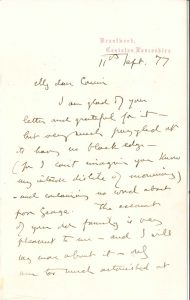 Brantwood,
Coniston Lancashire
11th Sept. 77
My dear Cousin
I am glad of your
letter and grateful for it —
but very much puzzled at
its having no black edge —
(for I can't imagine you knew
my intense dislike of mourning)
— and containing no word about
poor George. The account
of your own family is very
pleasant to me — and I will
say more about it — only
am too much astonished at